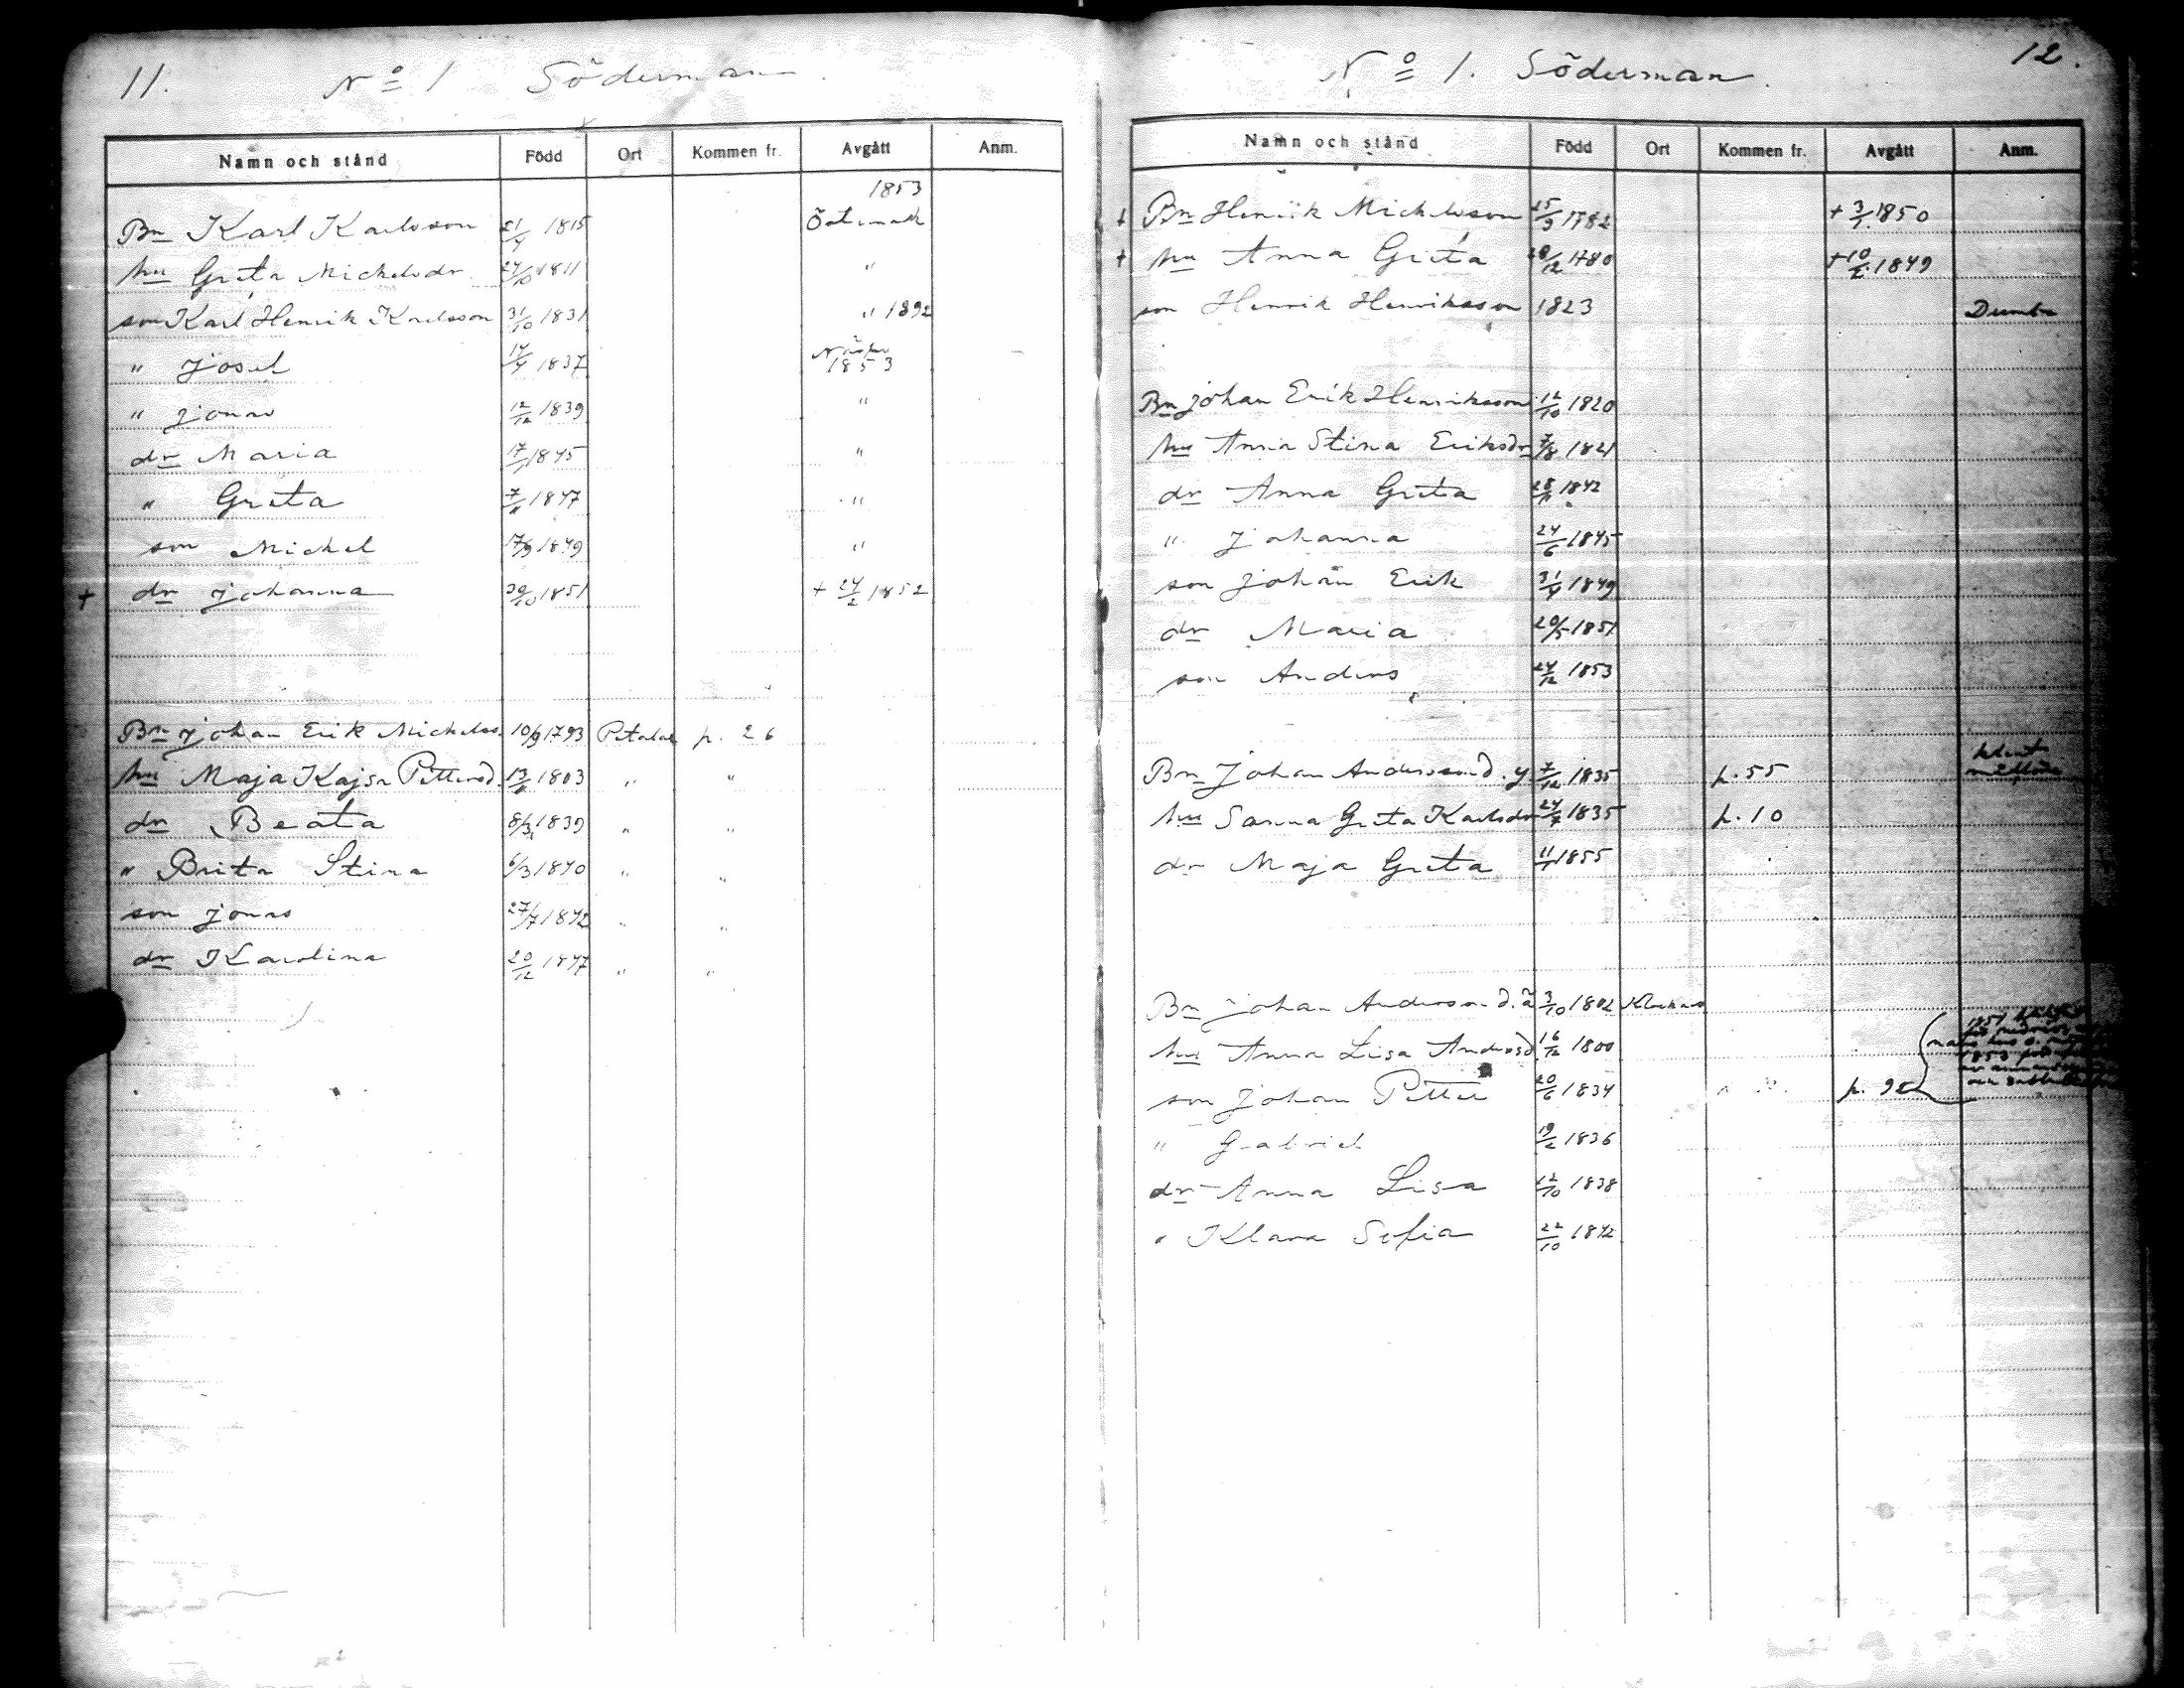 11. No 1 Söderman.
Namn och stånd Född Ort Kommen fr. Avgått Anm.
1853
Bn Karl Karlsson 21/4 1815 Östmark
hu Greta Michelsdr. 24/10 1811 "
son Karl Henrik Karlsson 31/10 1831 " 1892
" Josef 14/4 1837 1853
" Jonas 12/12 1839 "
dr Maria 17/1 1845 "
" Greta 7/11 1847 "
son Michel 17/9 1849 "
+ dr Johanna 30/10 1851 + 24/2 1852
Bn Johan Erik Michelss. 10/9 1793 Petalax p. 26
hu Maja Kajsa Pettersd. 13/8 1803 " "
dr Beata 8/3 1839 " "
" Brita Stina 6/3 1840 " "
son Jonas 27/7 1842 " "
dr Karolina 20/12 1847 " "
No 1. Söderman. 12.
Namn och stånd Född Ort Kommen fr. Avgått Anm.
+ Bn Henrik Michelsson 25/3 1782 + 3/7 1850
+ hu Anna Greta 28/12 1780 + 10/2 1849
son Henrik Henriksson 1823 Dumb
Bn Johan Erik Henriksson 12/10 1820
hu Anna Stina Eriksdr 7/8 1821
dr Anna Greta 28/11 1842
" Johanna 24/6 1845
son Johan Erik 31/7 1849
dr Maria 20/5 1851
son Anders 24/12 1853
Bn Johan Andersson d. y. 7/12 1835 p. 55
hu Sanna Greta Karlsdr 24/2 1835 p. 10
dr Maja Greta 11/1 1855
Bn Johan Andersson d. ä 3/10 1802 Klockars
hu Anna Lisa Andersd 16/12 1800
1853
son Johan Petter 20/6 1834 p. 92
" Gabriel 19/2 1836
dr Anna Lisa 12/10 1838
" Klara Sofia 22/10 1842